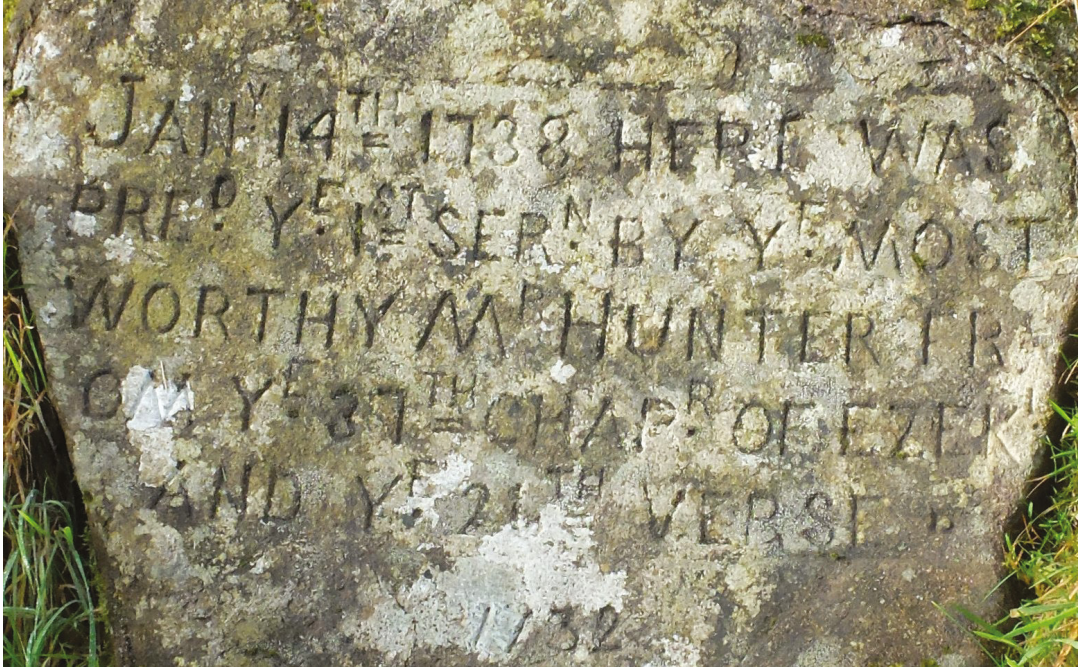 JANY 14TH 1738 HERE WAS
PRED YE 1ST SERN BY YE MOST
WORTHY MR HUNTER FR
OM YE 37TH CHAPR OF EZEK
AND YE 26TH VERSE
1732